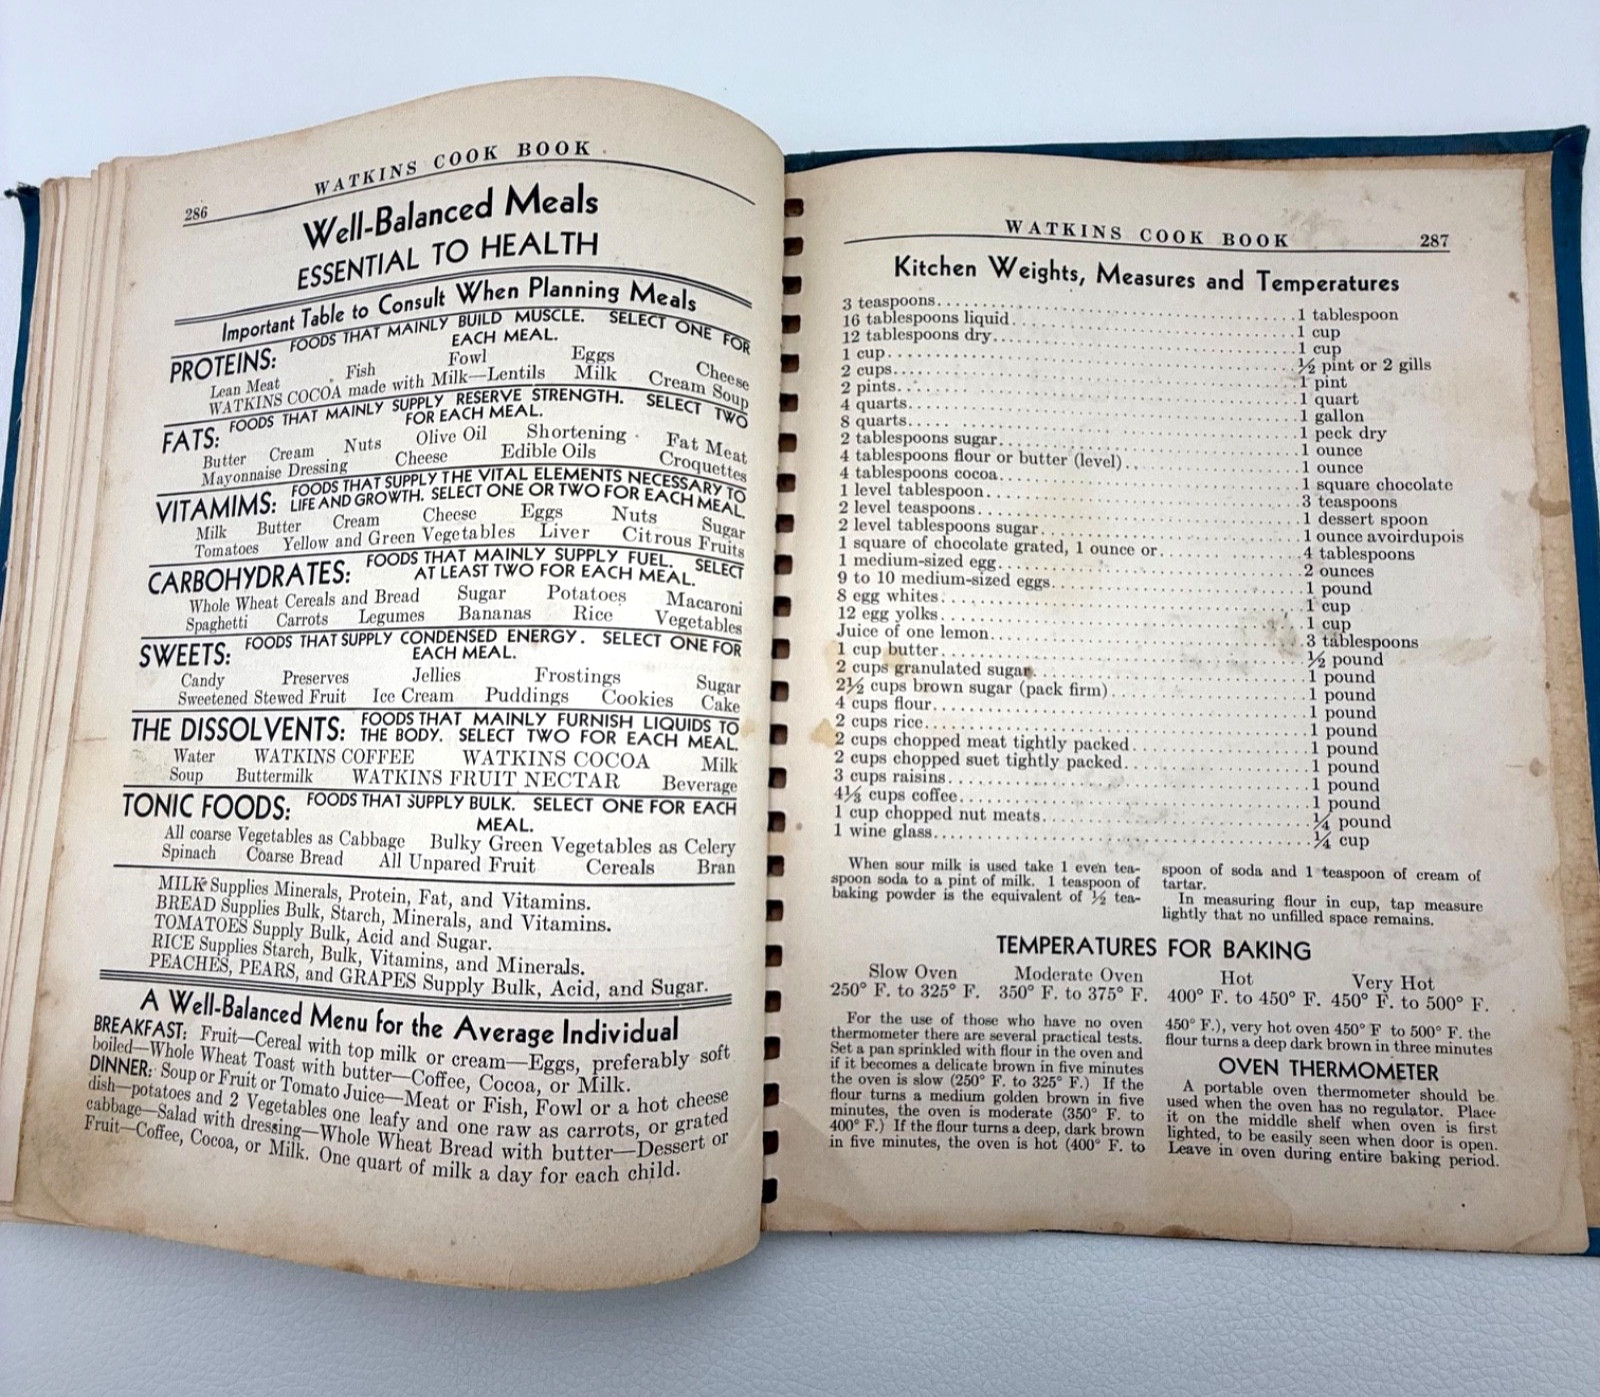 WATKINS COOK BOOK
286
Well-Balanced Meals
ESSENTIAL TO HEALTH
Important Table to Consult When Planning Meals
PROTEINS: FOODS THAT MAINLY BUILD MUSCLE. SELECT ONE FOR
EACH MEAL.
Lean Meat Fish Fowl Eggs Cheese
WATKINS COCOA made with Milk—Lentils Milk Cream Soup
FATS: FOODS THAT MAINLY SUPPLY RESERVE STRENGTH. SELECT TWO
FOR EACH MEAL.
Butter Cream Nuts Olive Oil Shortening Fat Meat
Mayonnaise Dressing Cheese Edible Oils Croquettes
VITAMIMS: FOODS THAT SUPPLY THE VITAL ELEMENTS NECESSARY TO
LIFE AND GROWTH. SELECT ONE OR TWO FOR EACH MEAL.
Milk Butter Cream Cheese Eggs Nuts Sugar
Tomatoes Yellow and Green Vegetables Liver Citrous Fruits
CARBOHYDRATES: FOODS THAT MAINLY SUPPLY FUEL. SELECT
AT LEAST TWO FOR EACH MEAL.
Whole Wheat Cereals and Bread Sugar Potatoes Macaroni
Spaghetti Carrots Legumes Bananas Rice Vegetables
SWEETS: FOODS THAT SUPPLY CONDENSED ENERGY. SELECT ONE FOR
EACH MEAL.
Candy Preserves Jellies Frostings Sugar
Sweetened Stewed Fruit Ice Cream Puddings Cookies Cake
THE DISSOLVENTS: FOODS THAT MAINLY FURNISH LIQUIDS TO
THE BODY. SELECT TWO FOR EACH MEAL.
Water WATKINS COFFEE WATKINS COCOA Milk
Soup Buttermilk WATKINS FRUIT NECTAR Beverage
TONIC FOODS: FOODS THAT SUPPLY BULK. SELECT ONE FOR EACH
MEAL.
All coarse Vegetables as Cabbage Bulky Green Vegetables as Celery
Spinach Coarse Bread All Unpared Fruit Cereals Bran
MILK Supplies Minerals, Protein, Fat, and Vitamins.
BREAD Supplies Bulk, Starch, Minerals, and Vitamins.
TOMATOES Supply Bulk, Acid and Sugar.
RICE Supplies Starch, Bulk, Vitamins, and Minerals.
PEACHES, PEARS, and GRAPES Supply Bulk, Acid, and Sugar.
A Well-Balanced Menu for the Average Individual
BREAKFAST: Fruit—Cereal with top milk or cream—Eggs, preferably soft
boiled—Whole Wheat Toast with butter—Coffee, Cocoa, or Milk.
DINNER: Soup or Fruit or Tomato Juice—Meat or Fish, Fowl or a hot cheese
dish—potatoes and 2 Vegetables one leafy and one raw as carrots, or grated
cabbage—Salad with dressing—Whole Wheat Bread with butter—Dessert or
Fruit—Coffee, Cocoa, or Milk. One quart of milk a day for each child.
WATKINS COOK BOOK 287
Kitchen Weights, Measures and Temperatures
3 teaspoons 1 tablespoon
16 tablespoons liquid 1 cup
12 tablespoons dry 1 cup
1 cup ½ pint or 2 gills
2 cups 1 pint
2 pints 1 quart
4 quarts 1 gallon
8 quarts 1 peck dry
2 tablespoons sugar 1 ounce
4 tablespoons flour or butter (level) 1 ounce
4 tablespoons cocoa 1 square chocolate
1 level tablespoon 3 teaspoons
2 level teaspoons 1 dessert spoon
2 level tablespoons sugar 1 ounce avoirdupois
1 square of chocolate grated, 1 ounce or 4 tablespoons
1 medium-sized egg 2 ounces
9 to 10 medium-sized eggs 1 pound
8 egg whites 1 cup
12 egg yolks 1 cup
Juice of one lemon 3 tablespoons
1 cup butter ½ pound
2 cups granulated sugar 1 pound
2½ cups brown sugar (pack firm) 1 pound
4 cups flour 1 pound
2 cups rice 1 pound
2 cups chopped meat tightly packed 1 pound
2 cups chopped suet tightly packed 1 pound
3 cups raisins 1 pound
4⅓ cups coffee 1 pound
1 cup chopped nut meats ¼ pound
1 wine glass ¼ cup
When sour milk is used take 1 even tea-
spoon soda to a pint of milk. 1 teaspoon of
baking powder is the equivalent of ½ tea-
spoon of soda and 1 teaspoon of cream of
tartar.
In measuring flour in cup, tap measure
lightly that no unfilled space remains.
TEMPERATURES FOR BAKING
Slow Oven Moderate Oven Hot Very Hot
250° F. to 325° F. 350° F. to 375° F. 400° F. to 450° F. 450° F. to 500° F.
For the use of those who have no oven
thermometer there are several practical tests.
Set a pan sprinkled with flour in the oven and
if it becomes a delicate brown in five minutes
the oven is slow (250° F. to 325° F.) If the
flour turns a medium golden brown in five
minutes, the oven is moderate (350° F. to
400° F.) If the flour turns a deep, dark brown
in five minutes, the oven is hot (400° F. to
450° F.), very hot oven 450° F to 500° F. the
flour turns a deep dark brown in three minutes
OVEN THERMOMETER
A portable oven thermometer should be
used when the oven has no regulator. Place
it on the middle shelf when oven is first
lighted, to be easily seen when door is open.
Leave in oven during entire baking period.